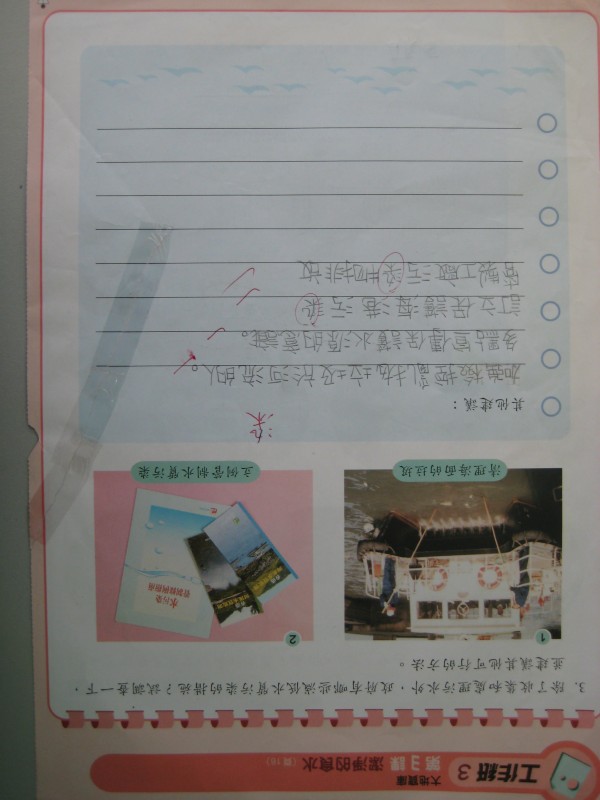 工作紙 3
大地寶庫
第3課 潔淨的食水 (頁16)
3. 除了收集和處理污水外，政府有哪些減低水質污染的措施？試調查一下，
並建議其他可行的方法。
1
2
水污染
管制條例指南
清理海面的垃圾
立例管制水質污染
其他建議：
染
加強檢控亂拋垃圾於河流的人。
多點宣傳保護水源的意識。
訂立保護海港污染
管製工廠污染物排放